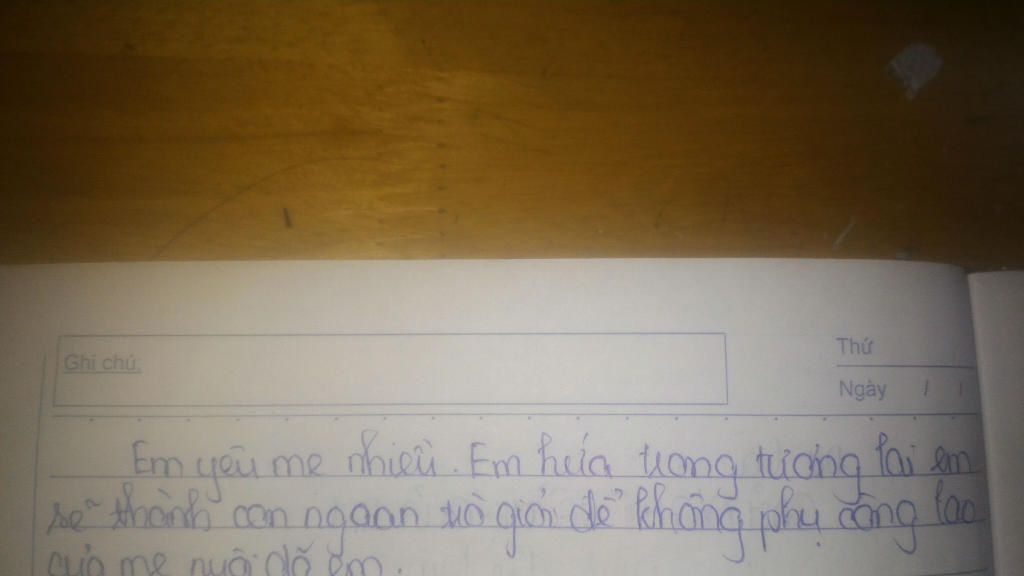 Ghi chú:
Thứ
Ngày / /
Em yêu mẹ nhiều. Em hứa trong tương lai em
sẽ thành con ngoan trò giỏi để không phụ công lao
của mẹ nuôi